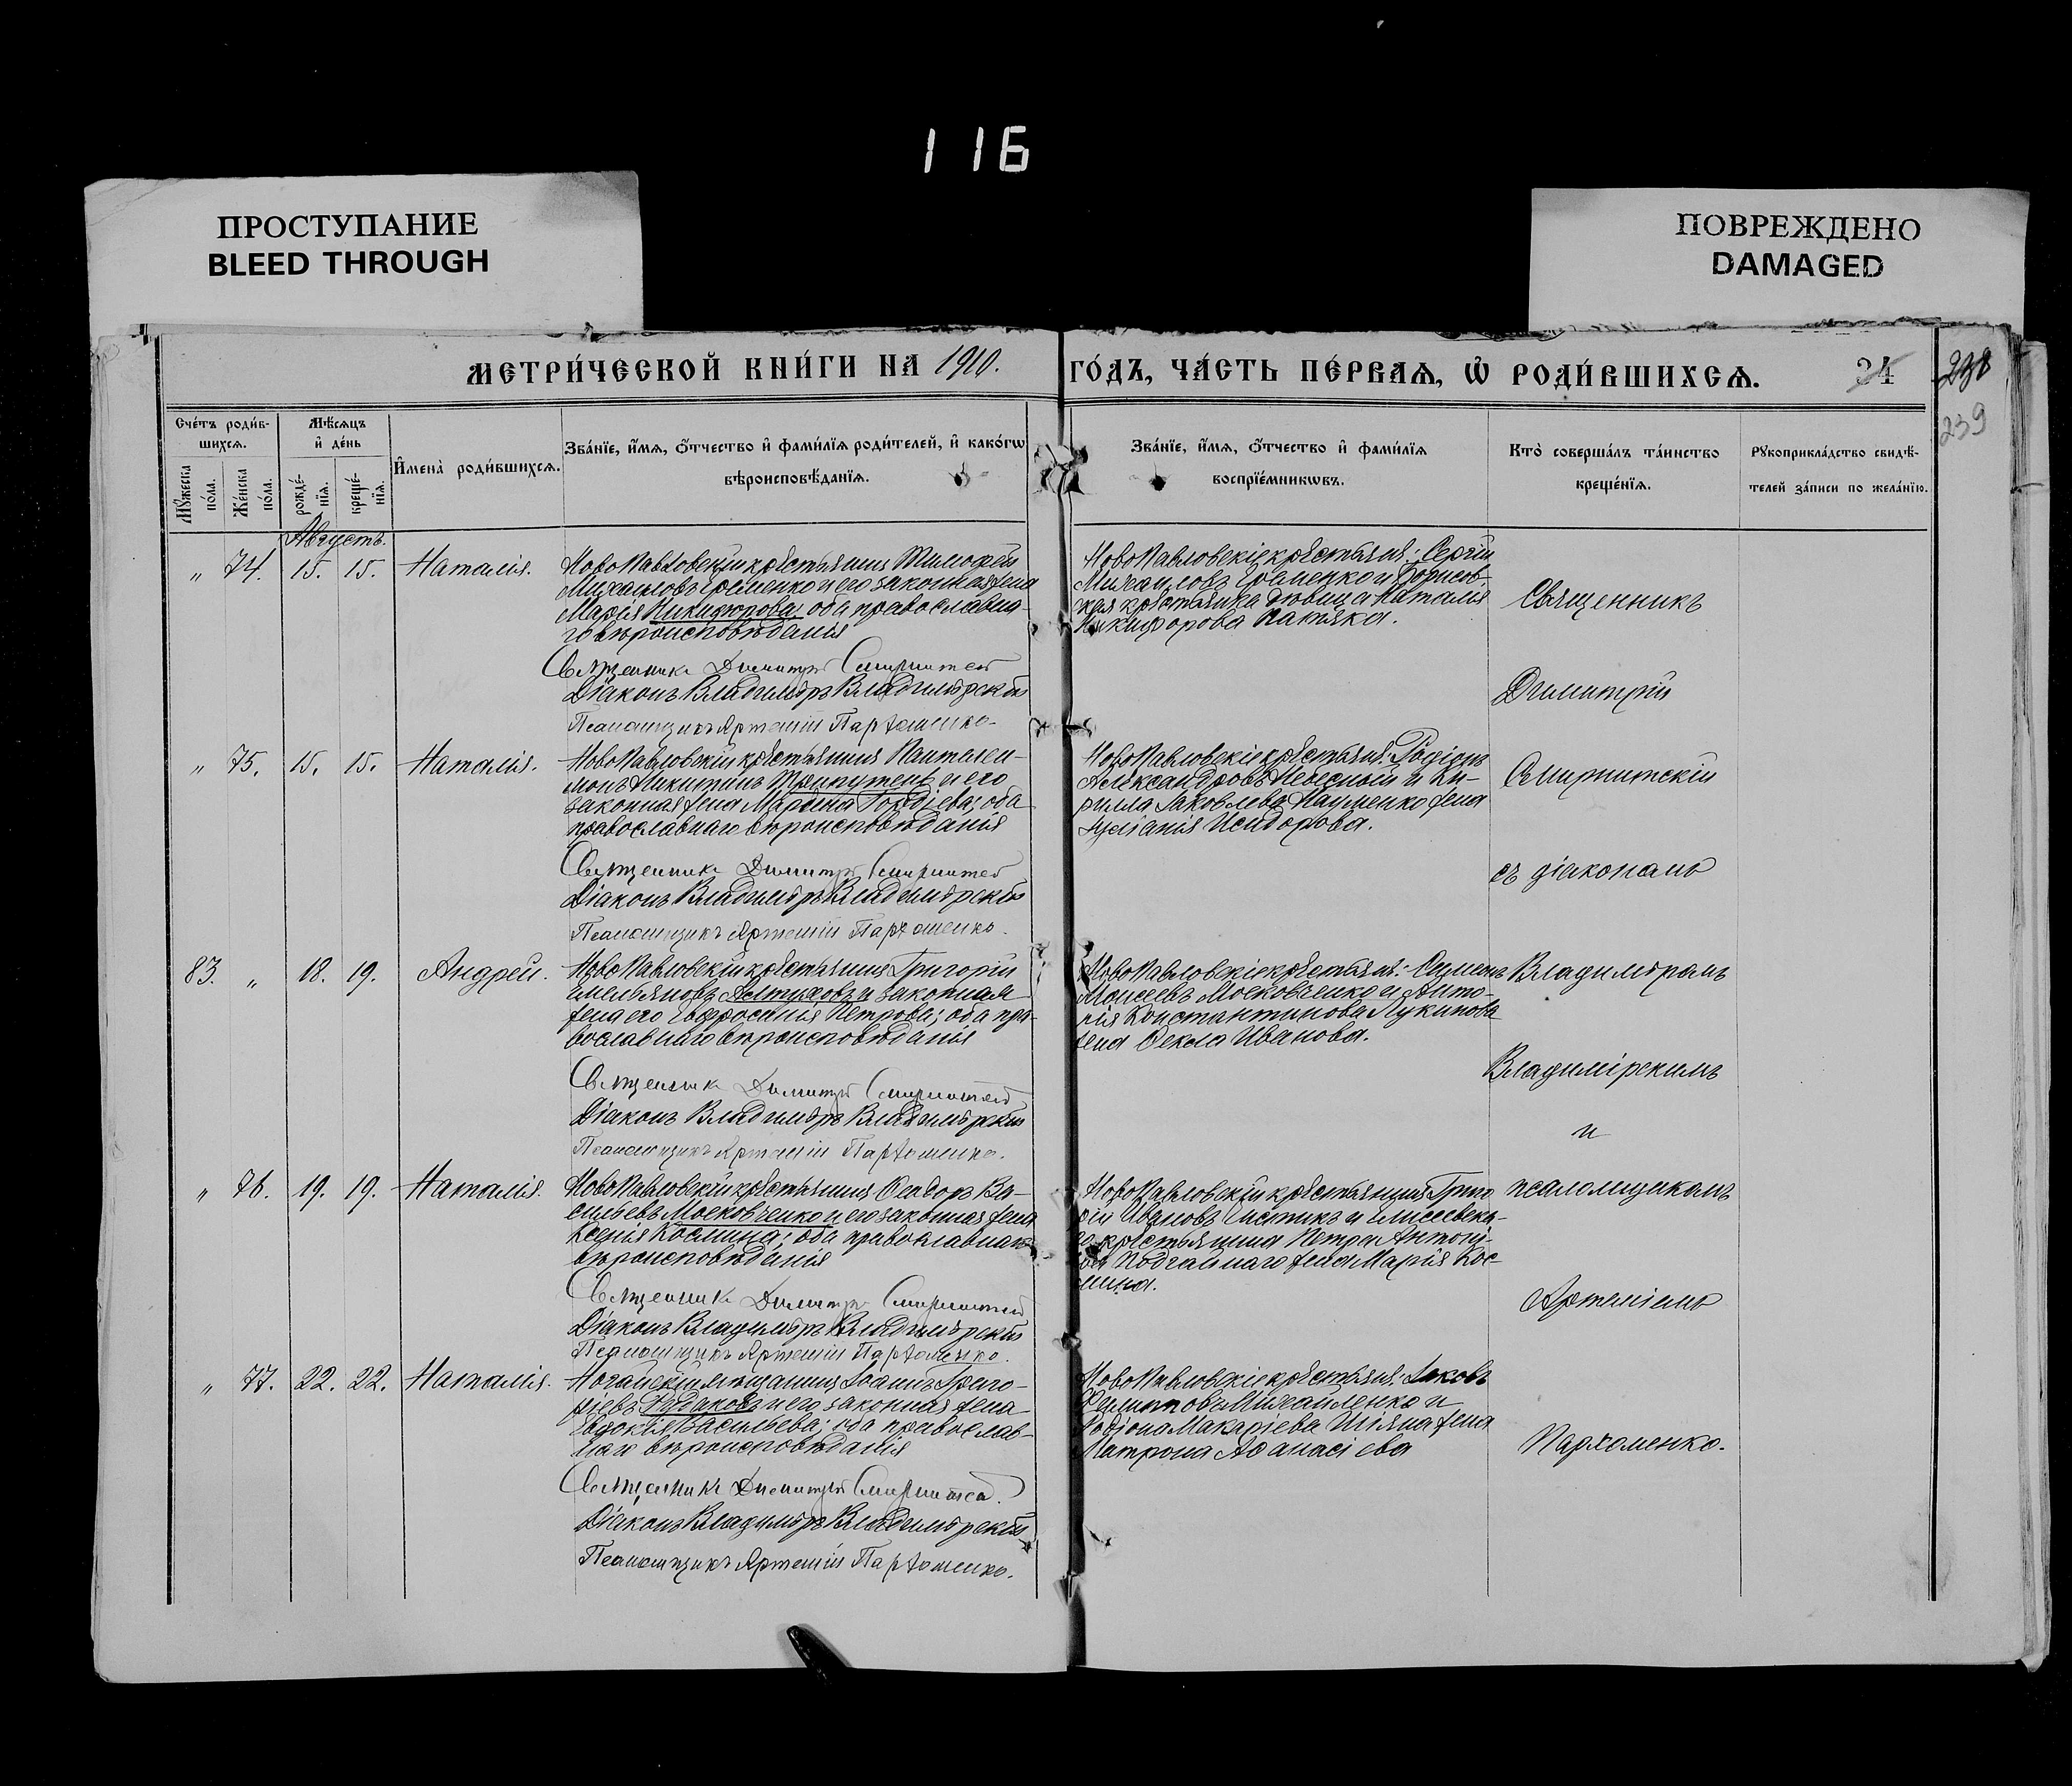 116
ПРОСТУПАНИЕ
BLEED THROUGH
ПОВРЕЖДЕНО
DAMAGED
МЕТРИ́ЧЕСКОЙ КНИ́ГИ НА 1910.
ГО́ДЪ, ЧА́СТЬ ПЕ́РВАѦ, Ѡ҆ РОДИ́ВШИХСѦ.
34
238
239
Сче́тъ роди́в-
шихсѧ.
Мѣ́сѧцъ
и҆ де́нь
И҆мена̀ роди́вшихсѧ.
Зва́нїе, и҆́мѧ, ѻ҆́тчество и҆ фами́лїѧ роди́телей, и҆ како́гѡ
вѣроисповѣ́данїѧ.
Мꙋ́жеска
по́ла.
Же́нска
по́ла.
рожде́-
нїѧ.
креще́-
нїѧ.
Зва́нїе, и҆́мѧ, ѻ҆́тчество и҆ фами́лїѧ
воспрїе́мникѡвъ.
Кто̀ соверша́лъ та́инство
креще́нїѧ.
Рꙋкоприкла́дство свидѣ́-
телей за́писи по жела́нїю.
Августъ.
" 74. 15. 15. Наталія.
Ново Павловскій крестьянинъ Тимофей
Михаиловъ Еременко и его законная жена
Марія Никифорова, оба православна-
го вѣроисповѣданія
Священникъ Димитрій
Діаконъ Владиміръ Владимірскій
Псаломщикъ Артемій Пархоменко.
Ново Павловскіе крестьяне: Сергій
Михаиловъ Еременко и Борисов-
ская крестьянка дѣвица Наталія
Никифорова
Священникъ
Димитрій
" 75. 15. 15. Наталія.
Ново Павловскій крестьянинъ Пантелей-
монъ Никитинъ Трипутень и его
законная жена Марѳа Гордіева; оба
православнаго вѣроисповѣданія
Священникъ Димитрій
Діаконъ Владиміръ Владимірскій
Псаломщикъ Артемій Пархоменко.
Ново Павловскіе крестьяне: Родіонъ
Александровъ и Ки-
рилла Іаковлева Науменко жена
Іуліанія Исидорова.
съ діакономъ
83. " 18. 19. Андрей.
Ново Павловскій крестьянинъ Григорій
Емельяновъ Астуховъ и законная
жена его Евфросинія Петрова; оба пра-
вославнаго вѣроисповѣданія
Священникъ Димитрій
Діаконъ Владиміръ Владимірскій
Псаломщикъ Артемій Пархоменко.
Ново Павловскіе крестьяне: Симеонъ
Моисеевъ Московченко и Анто-
нія Константинова Лукинова
жена Ѳекла Иванова.
Владиміромъ
Владимірскимъ
и
" 76. 19. 19. Наталія.
Ново Павловскій крестьянинъ Ѳеодоръ Ва-
сильевъ Московченко и его законная жена
Ксенія Космина; оба православнаго
вѣроисповѣданія
Священникъ Димитрій
Діаконъ Владиміръ Владимірскій
Псаломщикъ Артемій Пархоменко.
Ново Павловскій крестьянинъ Григо-
рій Ивановъ и Елисеевска-
го крестьянина Петра Антоніе-
ва Подгайнаго жена Марія Кос-
мина.
псаломщикомъ
Артеміемъ
" 77. 22. 22. Наталія.
Ногайскій мѣщанинъ Іоаннъ Григо-
ріевъ и его законная жена
Евдокія Васильева; оба православ-
наго вѣроисповѣданія
Священникъ Димитрій
Діаконъ Владиміръ Владимірскій
Псаломщикъ Артемій Пархоменко.
Ново Павловскіе крестьяне: Іаковъ
Филипповъ Михайленко и
Родіона Макаріева Шіяна жена
Матрона Аѳанасіева
Пархоменко.